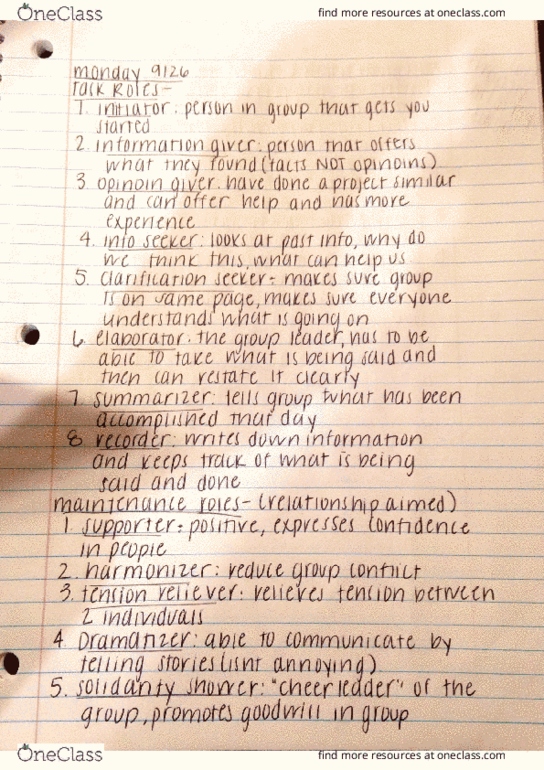 OneClass
find more resources at oneclass.com
monday 9126
Task Roles-
1. initiator: person in group that gets you
started
2. information giver: person that offers
what they found (facts NOT opinoins)
3. opinoin giver: have done a project similar
and can offer help and has more
experience
4. info seeker: looks at past info, why do
we think this, what can help us
5. clarification seeker: makes sure group
is on same page, makes sure everyone
understands what is going on
6. elaborator: the group leader, has to be
able to take what is being said and
then can restate it clearly
7. summarizer: tells group what has been
accomplished that day
8. recorder: writes down information
and keeps track of what is being
said and done
maintenance roles- (relationship aimed)
1. supporter: positive, expresses confidence
in people
2. harmonizer: reduce group conflict
3. tension reliever: relieves tension between
2 individuals
4. Dramatizer: able to communicate by
telling stories (isnt annoying)
5. solidarity shower: "cheerleader" of the
group, promotes goodwill in group
OneClass
find more resources at oneclass.com